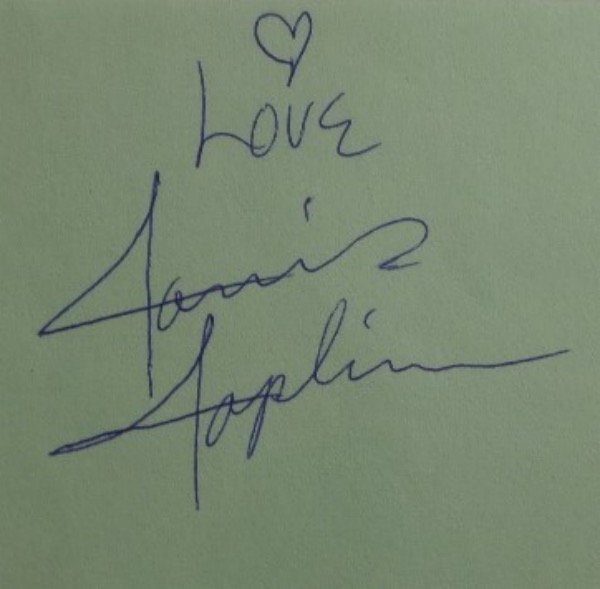 Love
Janis
Joplin